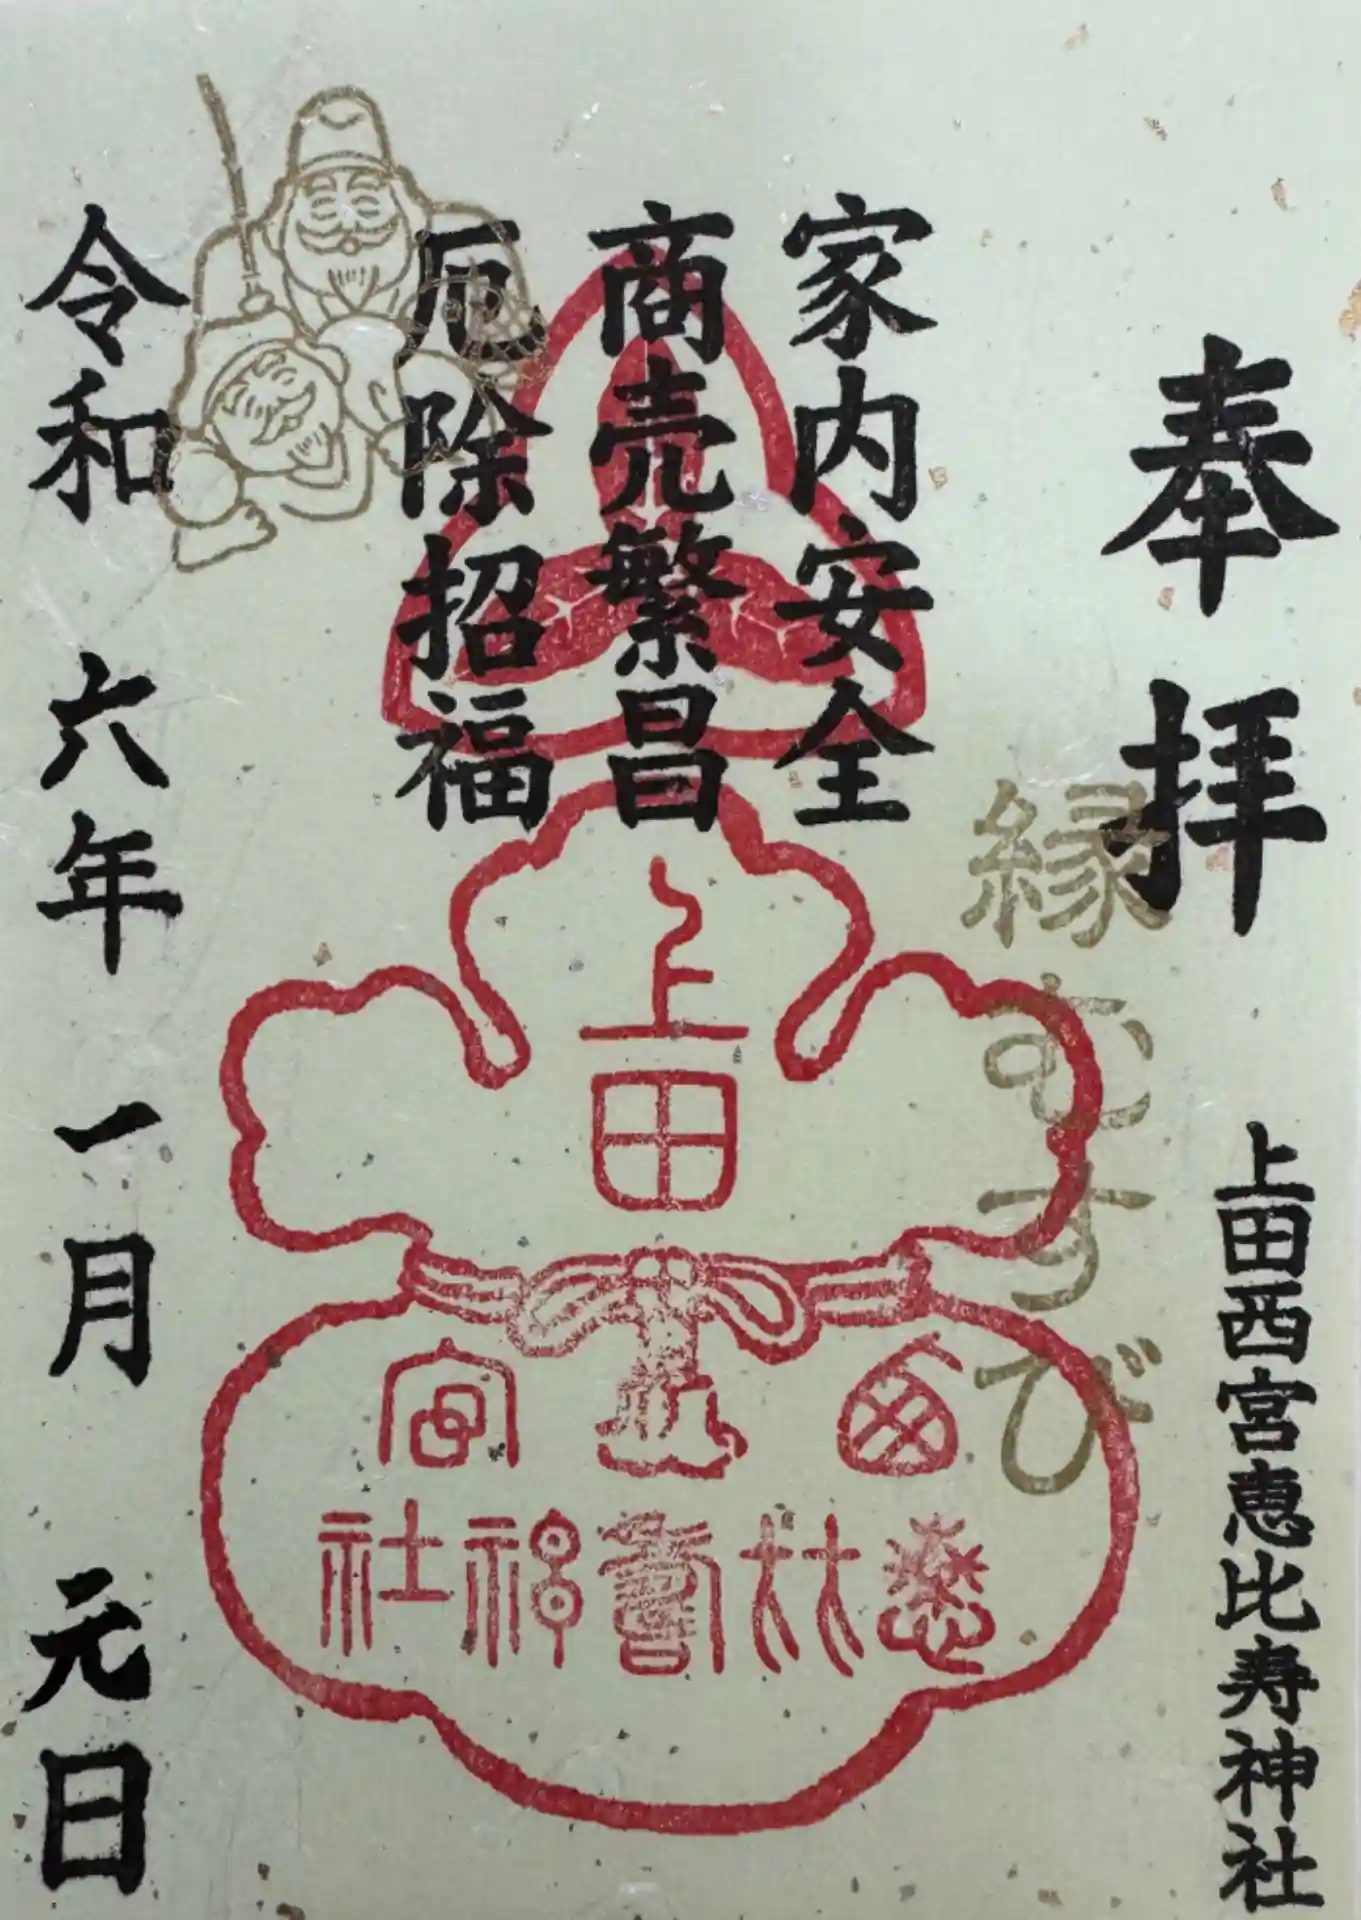 奉拝
上田西宮恵比寿神社
縁むすび
家内安全
商売繁昌
厄除招福
上田
西
宮
恵比寿神社
令和六年一月元日